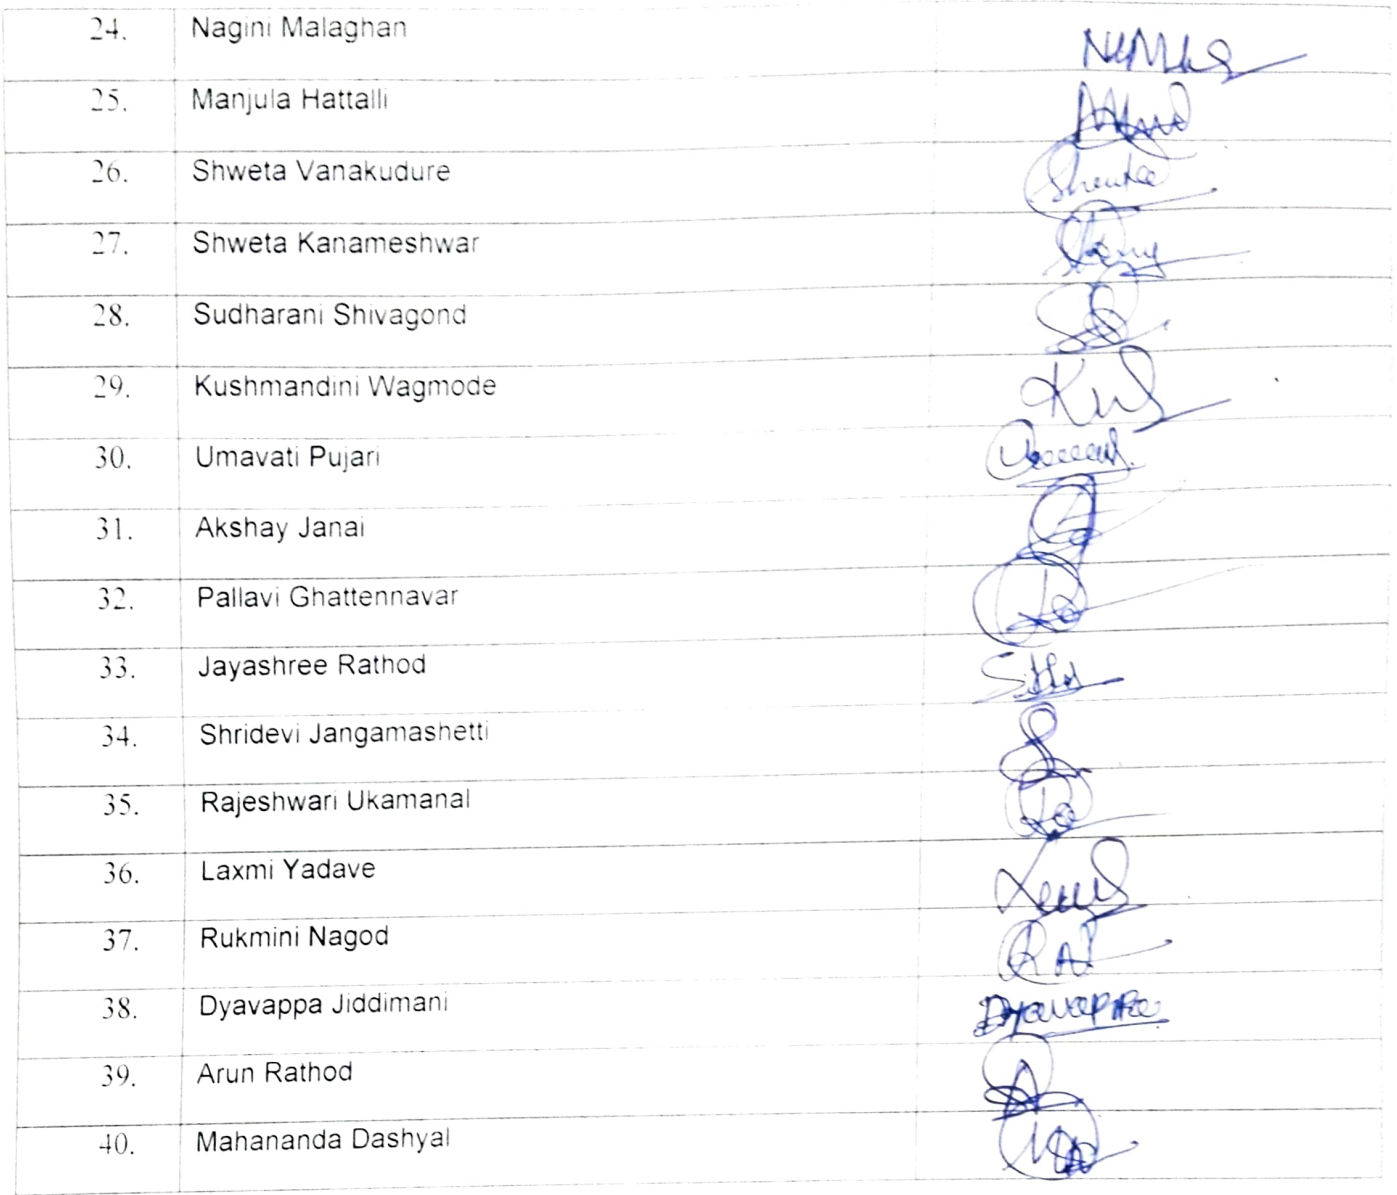 24. Nagini Malaghan
25. Manjula Hattalli
26. Shweta Vanakudure Shweta
27. Shweta Kanameshwar
28. Sudharani Shivagond
29. Kushmandini Wagmode
30. Umavati Pujari
31. Akshay Janai
32. Pallavi Ghattennavar
33. Jayashree Rathod
34. Shridevi Jangamashetti
35. Rajeshwari Ukamanal
36. Laxmi Yadave
37. Rukmini Nagod
38. Dyavappa Jiddimani Dyavappa
39. Arun Rathod
40. Mahananda Dashyal